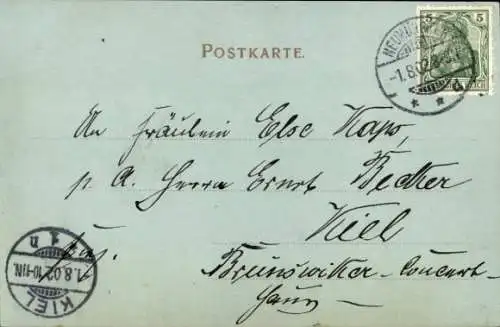 POSTKARTE.
5 5
-1.8.02
An Fräulein Else Kaps,
p. A. Herrn Ernst Becker
Kiel
Brunswiker-Concert-
haus
KIEL
1.8.02.10-11N.
1 n